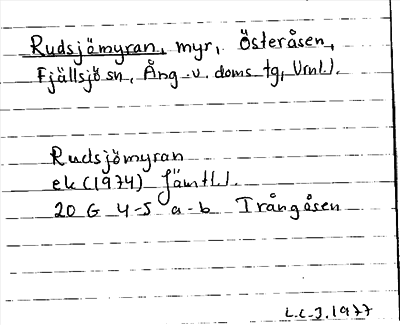 Rudsjömyran, myr, Österåsen,
Fjällsjö sn, Ång. v. doms. tg, Vrnl.l.
Rudsjömyran
ek (1974) Jämtl.l.
20 G 4-5 a-b Trångåsen
L.C.J. 1977